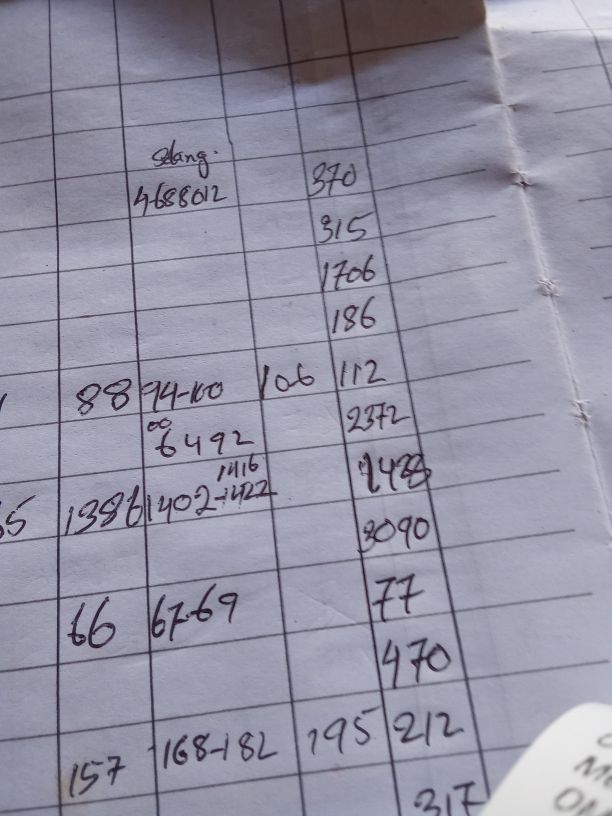 4688012 370
315
1706
186
88 94-100 106 112
6492 2372
1416
1386 1402-1422 1428
3090
66 67-69 77
470
157 168-182 195 212
317